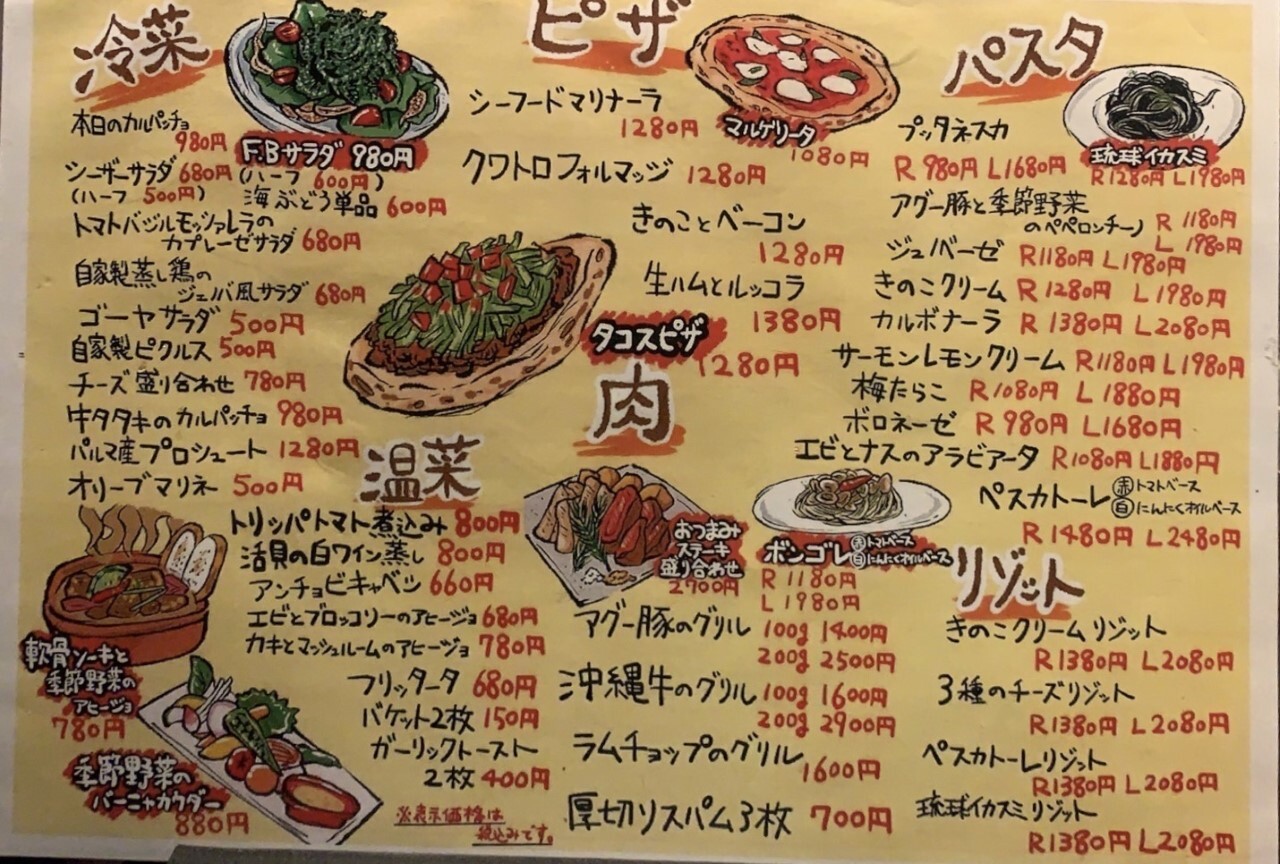 冷菜
本日のカルパッチョ
980円
F.Bサラダ 980円
(ハーフ 600円)
シーザーサラダ 680円
(ハーフ 500円)
海ぶどう単品 600円
トマトバジルモッツァレラの
カプレーゼサラダ 680円
自家製蒸し鶏の
ジェノバ風サラダ 680円
ゴーヤサラダ 500円
自家製ピクルス 500円
チーズ盛り合わせ 780円
牛タタキのカルパッチョ 980円
パルマ産プロシュート 1280円
オリーブマリネ 500円
温菜
トリッパトマト煮込み 800円
活貝の白ワイン蒸し 800円
アンチョビキャベツ 660円
エビとブロッコリーのアヒージョ 680円
カキとマッシュルームのアヒージョ 780円
フリッタータ 680円
バケット2枚 150円
ガーリックトースト
2枚 400円
軟骨ソーキと
季節野菜の
アヒージョ
780円
季節野菜の
バーニャカウダー
880円
※表示価格は
税込みです。
ピザ
シーフードマリナーラ
1280円
マルゲリータ
1080円
クワトロフォルマッジ 1280円
きのことベーコン
1280円
生ハムとルッコラ
1380円
タコスピザ
1280円
肉
おつまみ
ステーキ
盛り合わせ
2700円
アグー豚のグリル 100g 1400円
200g 2500円
沖縄牛のグリル 100g 1600円
200g 2900円
ラムチョップのグリル
1600円
厚切リスパム3枚 700円
パスタ
プッタネスカ
R 980円 L 1680円
琉球イカスミ
R1280円 L1980円
アグー豚と季節野菜
のペペロンチーノ R 1180円
L 1980円
ジェノベーゼ R1180円 L1980円
きのこクリーム R 1280円 L 1980円
カルボナーラ R 1380円 L2080円
サーモンレモンクリーム R1180円 L1980円
梅たらこ R1080円 L 1880円
ボロネーゼ R 980円 L1680円
エビとナスのアラビアータ R1080円 L1880円
ペスカトーレ 赤トマトベース
白にんにくオイルベース
R 1480円 L 2480円
ボンゴレ 赤トマトベース
白にんにくオイルベース
R 1180円
L 1980円
リゾット
きのこクリームリゾット
R1380円 L2080円
3種のチーズリゾット
R1380円 L2080円
ペスカトーレリゾット
R1380円 L2080円
琉球イカスミリゾット
R1380円 L2080円